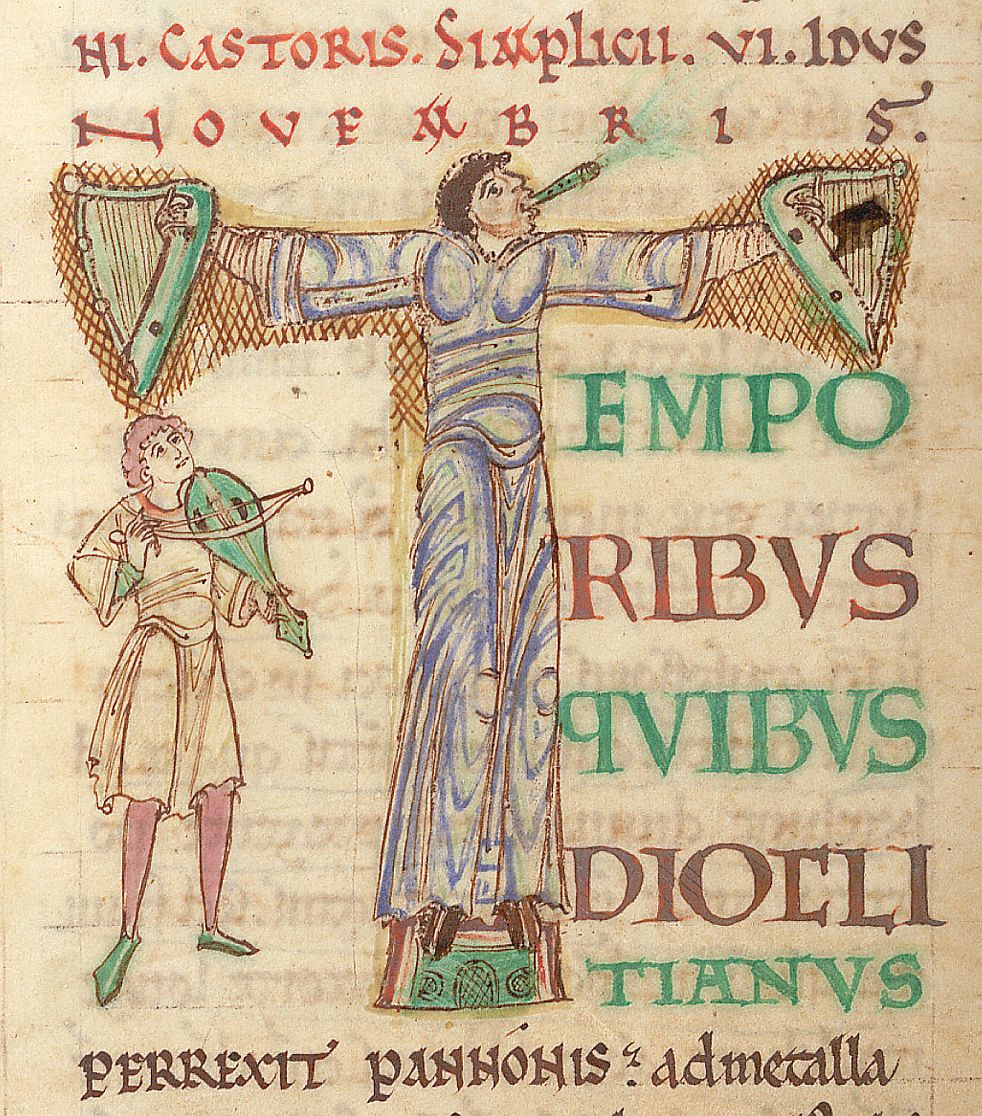 NI. CASTORIS. SIMPLICII. VI. IDVS
NOVEMBRIS.
TEMPO
RIBVS
QVIBVS
DIOCLI
TIANVS
PERREXIT PANNÓNIS: ad metalla